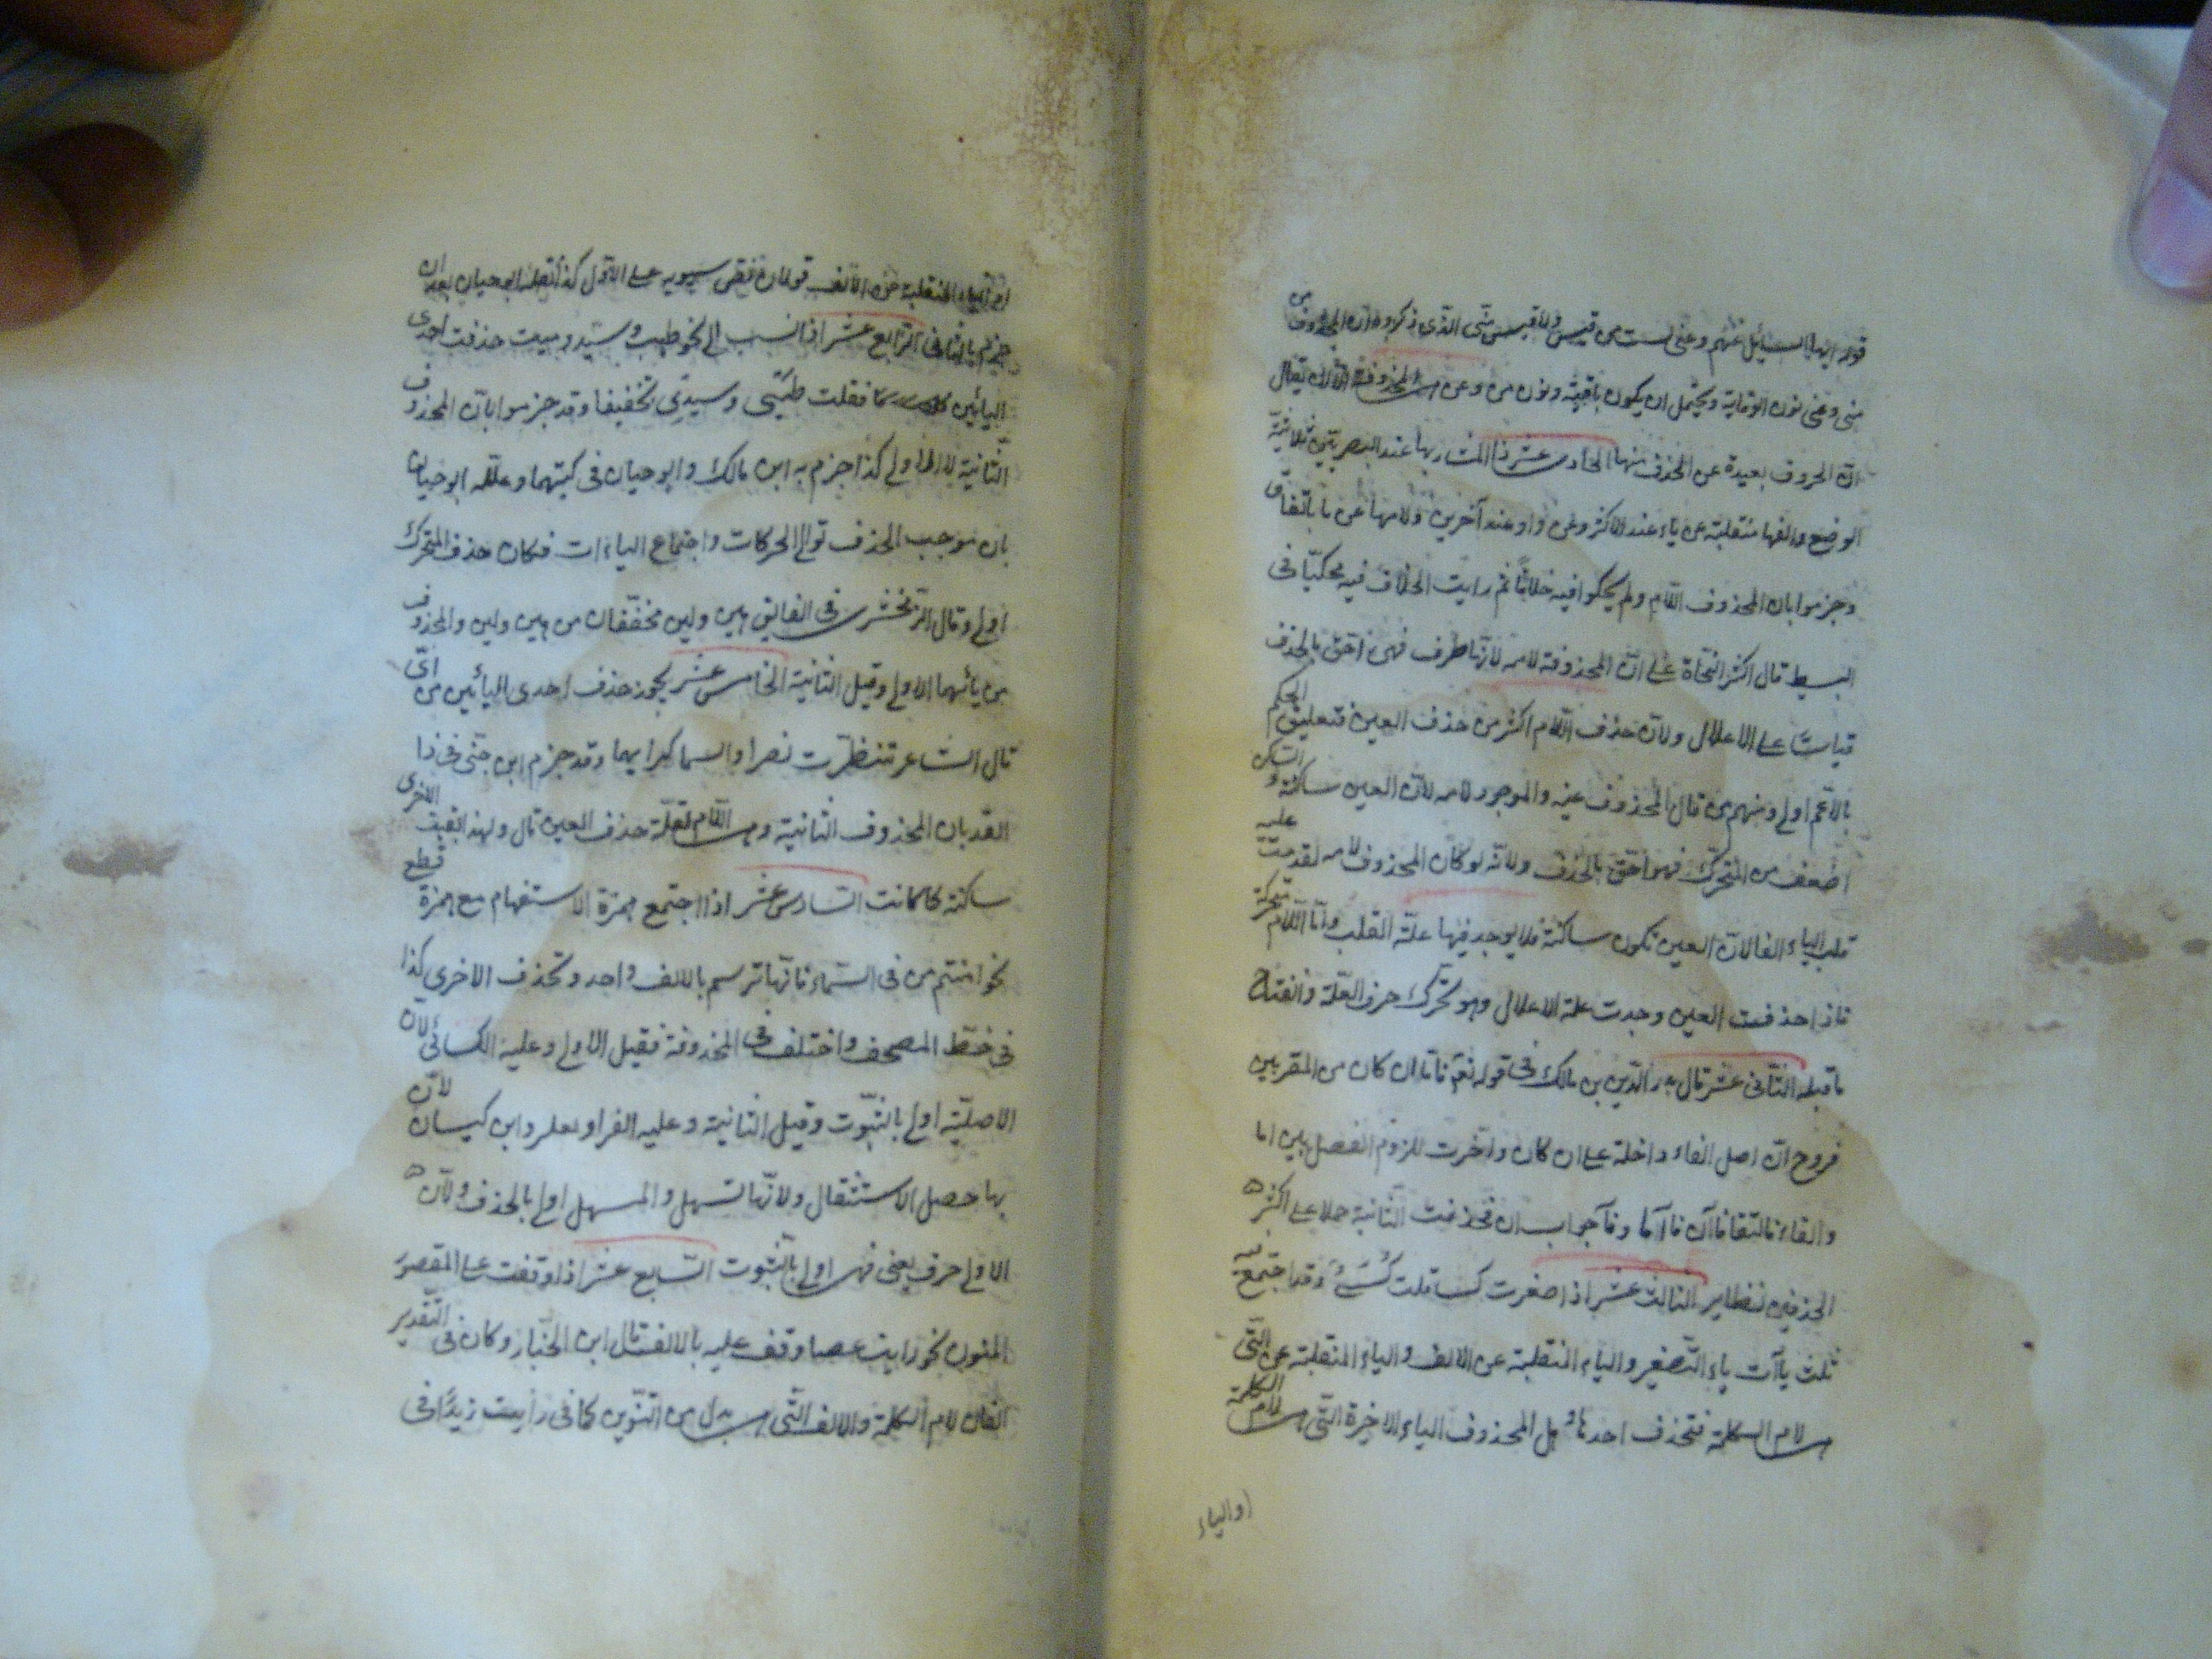 قوله ايها السائل عنهم وعني لست من قيس ولا قيس مني الذي ذكروه ان المحذوف من
مني وعني نون الوقاية ويحتمل ان يكون باقية ونون من وعن هي المحذوفة الا ان يقال
ان الحروف بعيدة عن الحذف منها الحادي عشر ذا المشار بها عند البصريين ثلاثية
الوضع والفها منقلبة عن ياء عند الاكثر وعن واو عند آخرين ولامها عن يا باتفاق
وجزموا بان المحذوف اللام ولم يحكوا فيه خلافا ثم رايت الخلاف فيه محكيا في
البسيط قال اكثر النحاة على ان المحذوفة لامه لانها طرف فهي احق بالحذف
قياسا على الاعلال ولان حذف اللام اكثر من حذف العين فتعليق الحكم
بالاعم اولى ومنهم من قال المحذوف عينه والموجود لامه لان العين ساكنة و الساكن
اضعف من المتحرك فهو احق بالحذف ولانه لو كان المحذوف لامه لقدمت عليه
قلب الياء الفا لان العين تكون ساكنة فلا يوجد فيها علة القلب واما اللام متحركة
فاذا حذفت العين وجدت علة الاعلال وهو تحرك حرف العلة وانفتاح
ما قبله الثاني عشر قال بدر الدين بن مالك في قوله تعم فاما ان كان من المقربين
فروح ان اصل الفاء داخلة على ان كان واخرت للزوم الفصل بين اما
والفاء فالتقا فاآن فا اما وفا جواب ان فحذفت الثانية حملا على اكثر
الحذفين نظاير الثالث عشر اذا صغرت كسا قلت كُسَيّ وقد اجتمع فيه
ثلث ياآت ياء التصغير والياء المنقلبة عن الالف والياء المنقلبة عن التي
هي لام الكلمة فتحذف احدها وهل المحذوف الياء الاخيرة التي هي لام الكلمة
او الياء
او الياء المنقلبة عن الالف قولان فنص سيبويه على الاول كذا نقله ابو حيان بعد ان
جزم بالثاني الرابع عشر اذا نسب الى نحو طيب وسيد وميت حذفت احدى
اليائين فقلت طيبي وسيدي تخفيفا وقد جزموا بان المحذوف
الثانية لا الاولى كذا جزم به ابن مالك وابو حيان في كتبهما وعلله ابو حيان
بان موجب الحذف توالى الحركات واجتماع الياءات فكان حذف المتحرك
اولى وقال الزمخشري في الفائق هين ولين مخففان من هين ولين والمحذوف
من يائهما الاولى وقيل الثانية الخامس عشر يجوز حذف احدى اليائين من اي
قال الشاعر تنظرت نصرا والسماكين ايهما وقد جزم ابن جني في ذا
القد بان المحذوف الثانية وهي اللام لقلة حذف العين قال ولهذا بقيت الاخرى
ساكنة كما كانت السادس عشر اذا اجتمع همزة الاستفهام مع همزة قطع
نحو امنتم من في السماء فانها ترسم بالالف واحد وتحذف الاخرى كذا
في خط المصحف واختلف في المحذوفة فقيل الاولى وعليه الكسائي لان
الاصلية اولى بالثبوت وقيل الثانية وعليه الفرا وثعلب وابن كيسان لان
بها حصل الاستثقال ولانها تسهل والمسهل اولى بالحذف ولان
الاولى حرف بمعنى فهي اولى بالثبوت السابع عشر اذا وقفت على المقصور
المنون نحو رايت عصا وقف عليه بالالف قال ابن الخباز وكان في التقدير
الفان لام الكلمة والالف التي هي بدل من التنوين كما في رايت زيدًا في